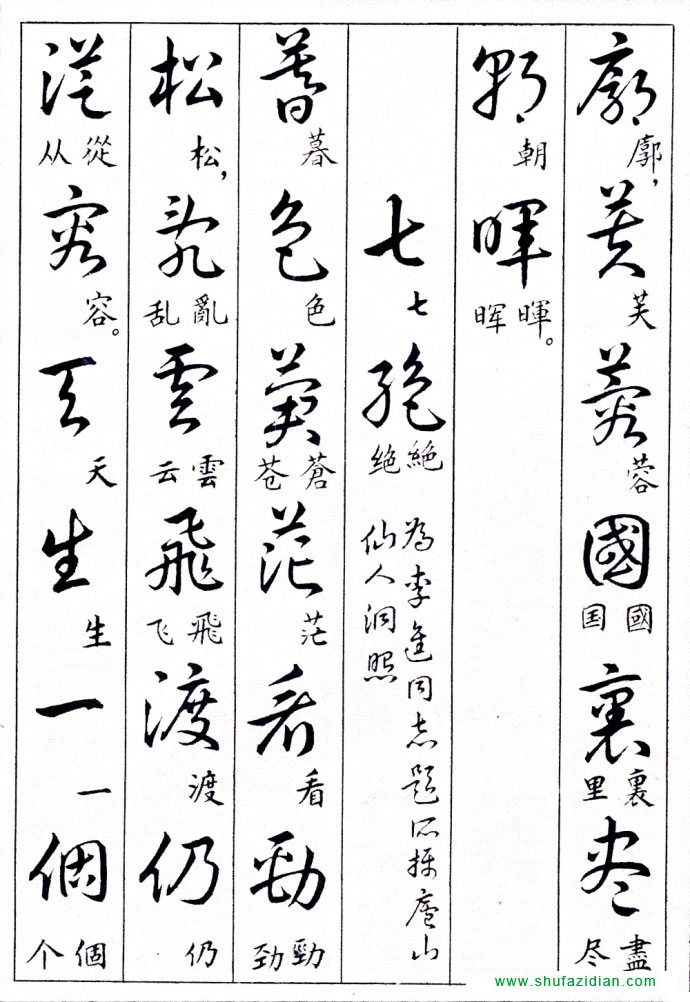 廓 廓， 芙 芙 蓉 蓉 國 國 国 裏 裏 里 盡 盡 尽
朝 朝 暉 暉 晖。
七 七 絶 絶 绝
為李進同志題所攝廬山
仙人洞照
暮 暮 色 色 蒼 蒼 苍 茫 茫 看 看 勁 勁 劲
松 松， 亂 亂 乱 雲 雲 云 飛 飛 飞 渡 渡 仍 仍
從 從 从 容 容。 天 天 生 生 一 一 個 個 个
www.shufazidian.com